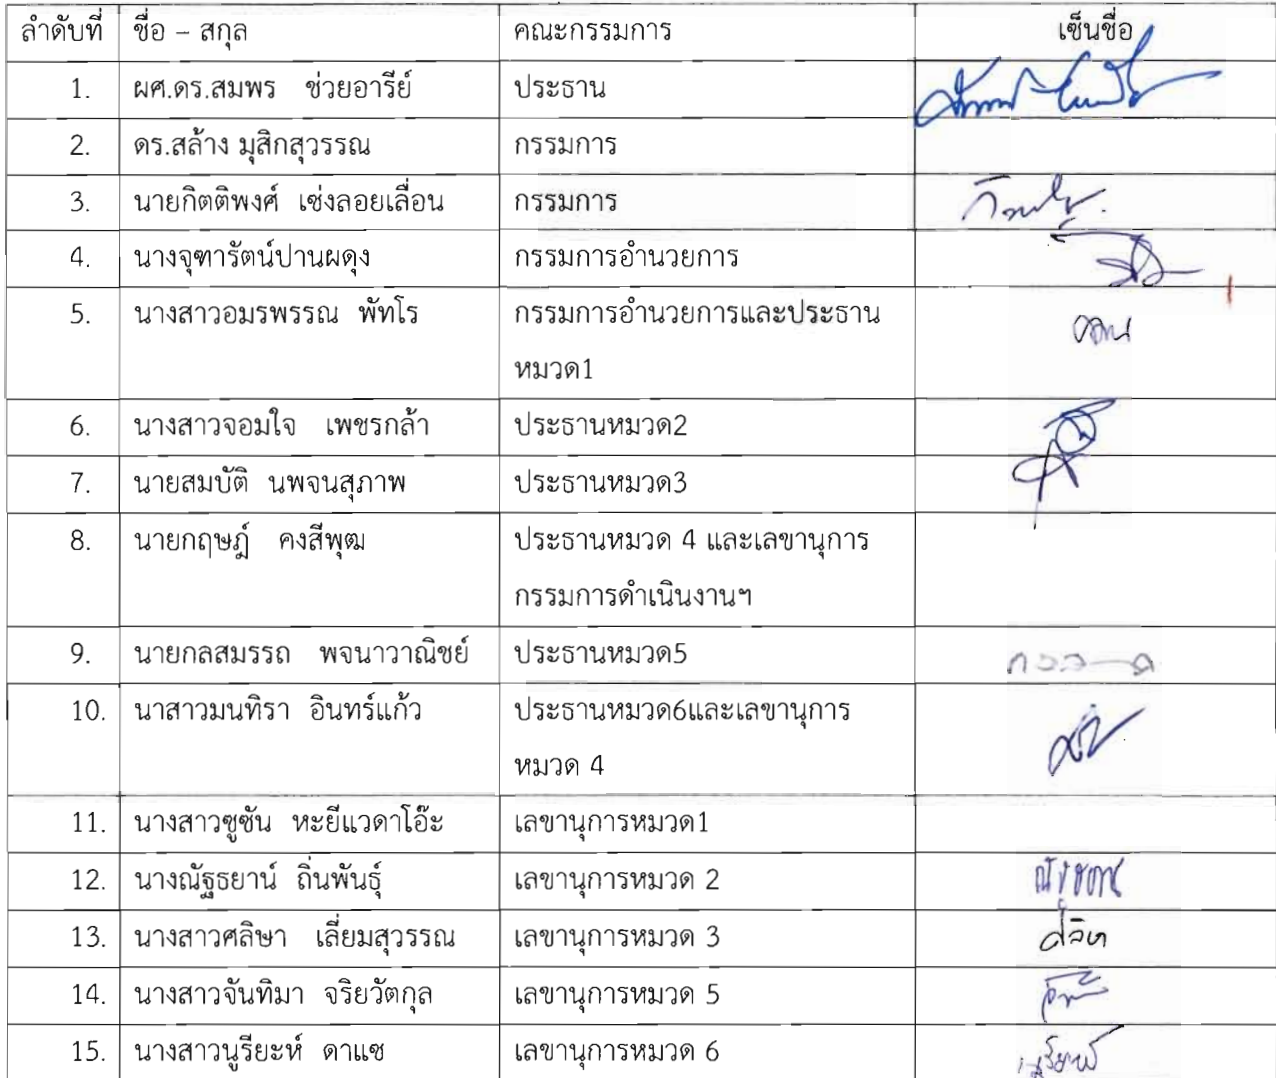 ลำดับที่ ชื่อ – สกุล คณะกรรมการ เซ็นชื่อ
1. ผศ.ดร.สมพร ช่วยอารีย์ ประธาน
2. ดร.สล้าง มุสิกสุวรรณ กรรมการ
3. นายกิตติพงศ์ เซ่งลอยเลื่อน กรรมการ
4. นางจุฑารัตน์ปานผดุง กรรมการอำนวยการ
5. นางสาวอมรพรรณ พัทโร กรรมการอำนวยการและประธาน
หมวด1
6. นางสาวจอมใจ เพชรกล้า ประธานหมวด2
7. นายสมบัติ นพจนสุภาพ ประธานหมวด3
8. นายกฤษฎ์ คงสีพุฒ ประธานหมวด 4 และเลขานุการ
กรรมการดำเนินงานฯ
9. นายกลสมรรถ พจนาวาณิชย์ ประธานหมวด5
10. นาสาวมนทิรา อินทร์แก้ว ประธานหมวด6และเลขานุการ
หมวด 4
11. นางสาวซูซัน หะยีแวดาโอ๊ะ เลขานุการหมวด1
12. นางณัฐธยาน์ ถิ่นพันธุ์ เลขานุการหมวด 2
13. นางสาวศลิษา เลี่ยมสุวรรณ เลขานุการหมวด 3
14. นางสาวจันทิมา จริยวัตกุล เลขานุการหมวด 5
15. นางสาวนูรียะห์ ดาแซ เลขานุการหมวด 6